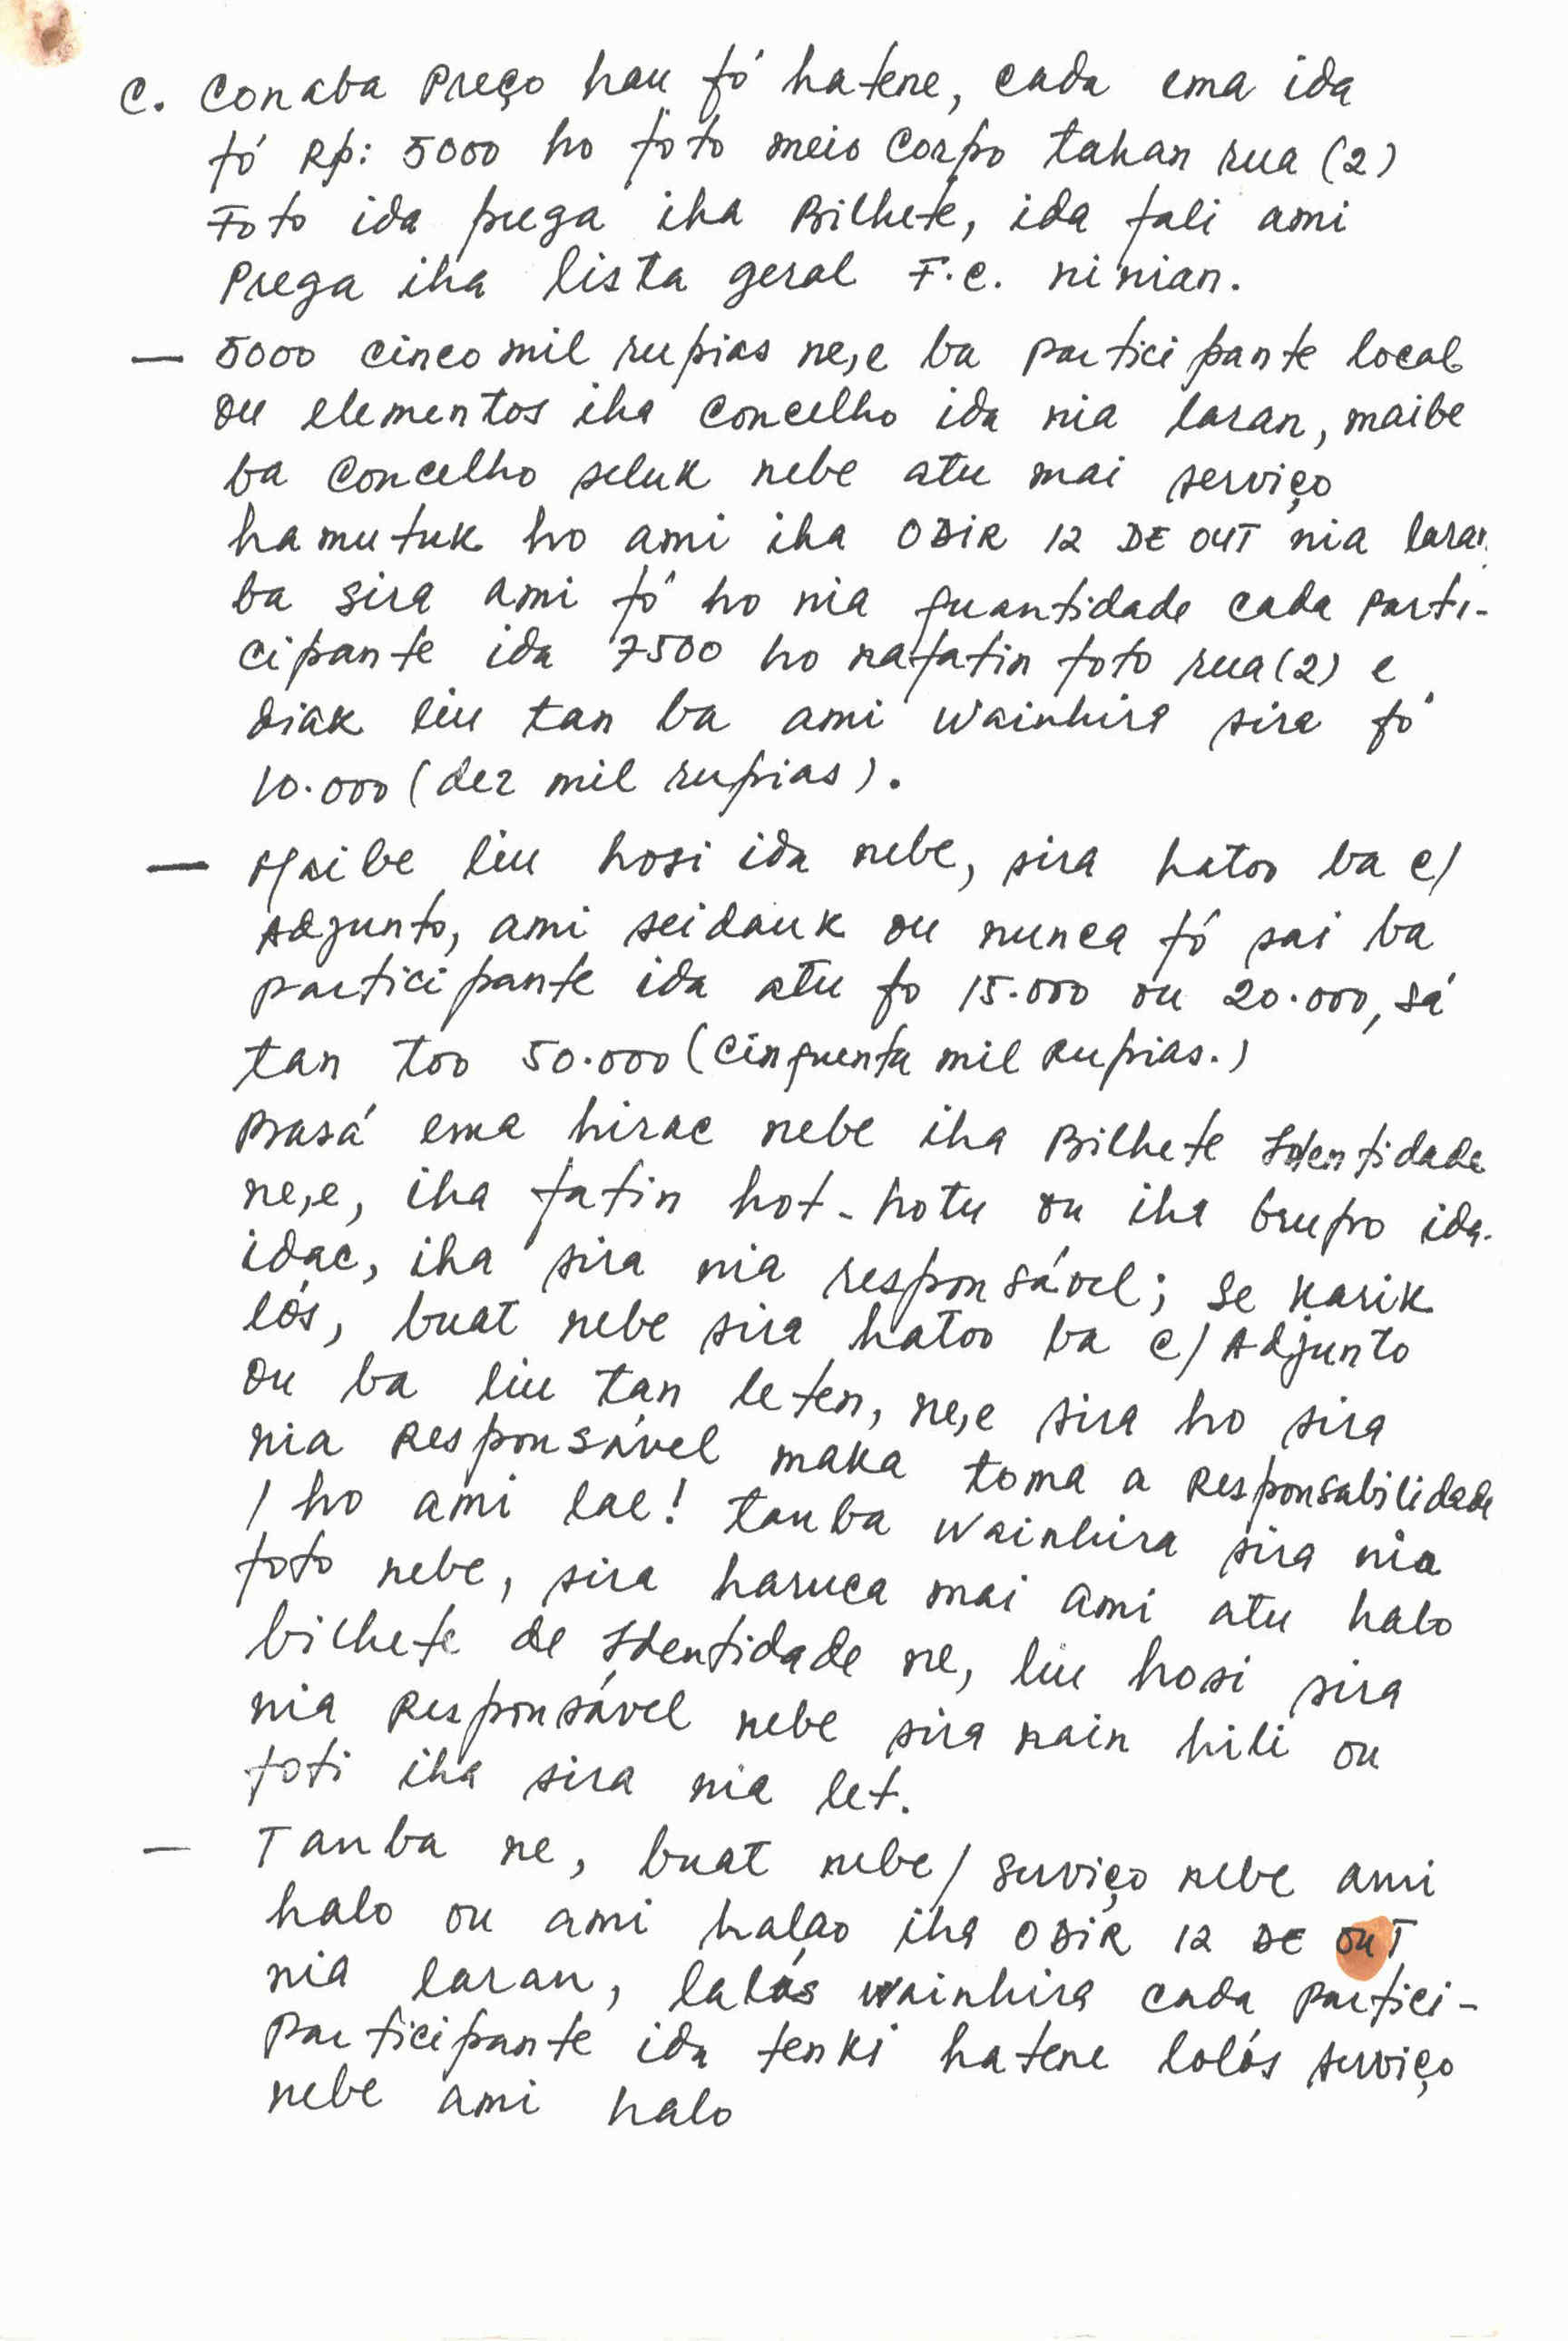 C. Conaba Preço hau fó hatene, cada ema ida
fó Rp: 5000 ho foto meio Corpo tahan rua (2)
Foto ida prega iha Bilhete, ida fali ami
Prega iha lista geral F.C. ninian.
— 5000 cinco mil rupias ne,e ba participante local
ou elementos iha concelho ida nia laran, maibe
ba concelho seluk nebe atu mai serviço
hamutuk ho ami iha ODIR 12 DE OUT nia laran
ba sira ami fó ho nia quantidade cada parti-
cipante ida 7500 ho nafatin foto rua (2) e
diak liu tan ba ami wainhira sira fó
10.000 (dez mil rupias).
— Maibe liu hosi ida nebe, sira hatoo ba C/
Adjunto, ami seidauk ou nunca fó sai ba
participante ida atu fo 15.000 ou 20.000, sá
tan too 50.000 (cinquenta mil Rupias.)
Basá ema hirac nebe iha Bilhete Identidade
ne,e, iha fatin hot-hotu ou iha Grupo ida-
idac, iha sira nia responsável; se karik
lós, buat nebe sira hatoo ba C/ Adjunto
ou ba liu tan leten, ne,e sira ho sira
nia Responsável maka toma a Responsabilidade
/ ho ami lae! tauba wainhira sira nia
foto nebe, sira haruca mai ami atu halo
bilhete de Identidade ne, liu hosi sira
nia Responsável nebe sira nain hili ou
foti iha sira nia let.
— Tauba ne, buat nebe / serviço nebe ami
halo ou ami halao iha ODIR 12 DE OUT
nia laran, lalós wainhira cada partici-
participante ida tenki hatene lolós serviço
nebe ami halo